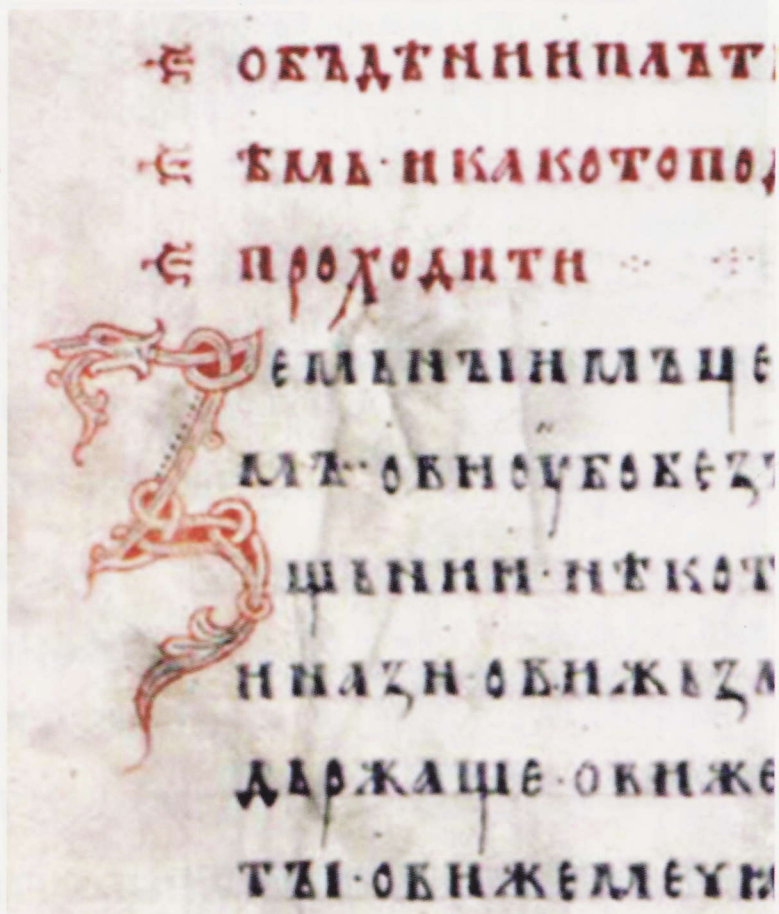 ОБЪДѢНИИПЛЪТ
ѢМЬ·ИКАКОТОПОД
ПРОХОДИТИ
ЗЕМЬНЪІИМЪЦЕ
МЪ·ОВИОУБОБЕЗЪ
ЩЬНИИ·НѢКОТ
ИНАЗИ·ОВИЖЬЗЛ
ДЬРЖАЩЕ·ОВИЖЕ
ТЪІ·ОВИЖЕМЕЧИ